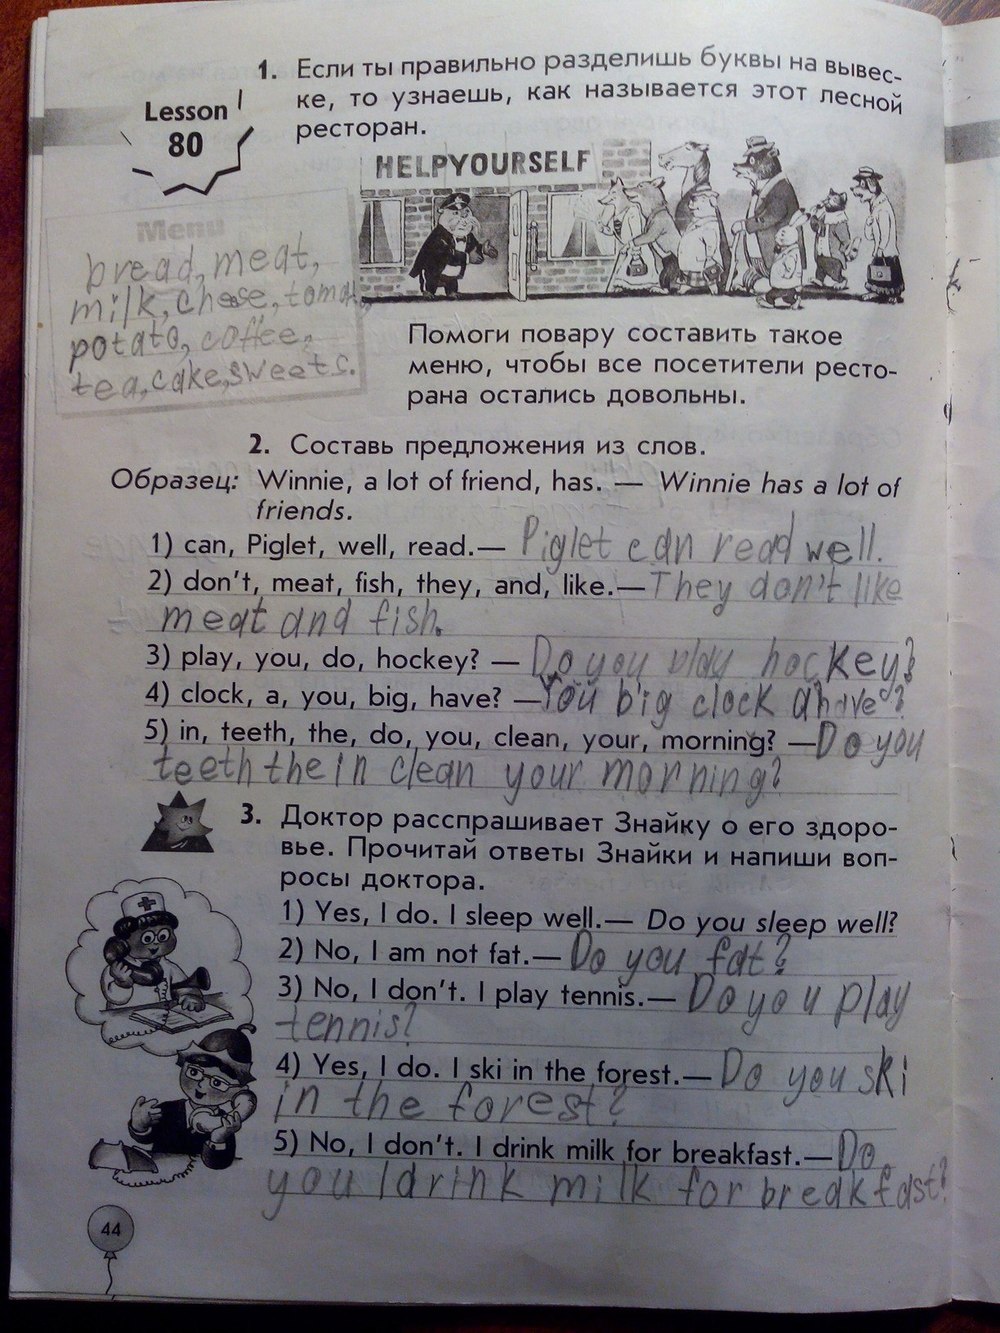 Lesson
80
1. Если ты правильно разделишь буквы на вывес-
ке, то узнаешь, как называется этот лесной
ресторан.
HELPYOURSELF
Menu
bread, meat,
milk, cheese,
potato, coffee,
tea, cake, sweets.
Помоги повару составить такое
меню, чтобы все посетители ресто-
рана остались довольны.
2. Составь предложения из слов.
Образец: Winnie, a lot of friend, has. — Winnie has a lot of
friends.
1) can, Piglet, well, read.— Piglet can read well.
2) don't, meat, fish, they, and, like.— They don't like
meat and fish.
3) play, you, do, hockey? — Do you play hockey?
4) clock, a, you, big, have? — You big clock a have?
5) in, teeth, the, do, you, clean, your, morning? —Do you
teeth the in clean your morning?
3. Доктор расспрашивает Знайку о его здоро-
вье. Прочитай ответы Знайки и напиши воп-
росы доктора.
1) Yes, I do. I sleep well.— Do you sleep well?
2) No, I am not fat.— Do you fat?
3) No, I don't. I play tennis.— Do you play
tennis?
4) Yes, I do. I ski in the forest.— Do you ski
in the forest?
5) No, I don't. I drink milk for breakfast.— Do
you drink milk for breakfast?
44